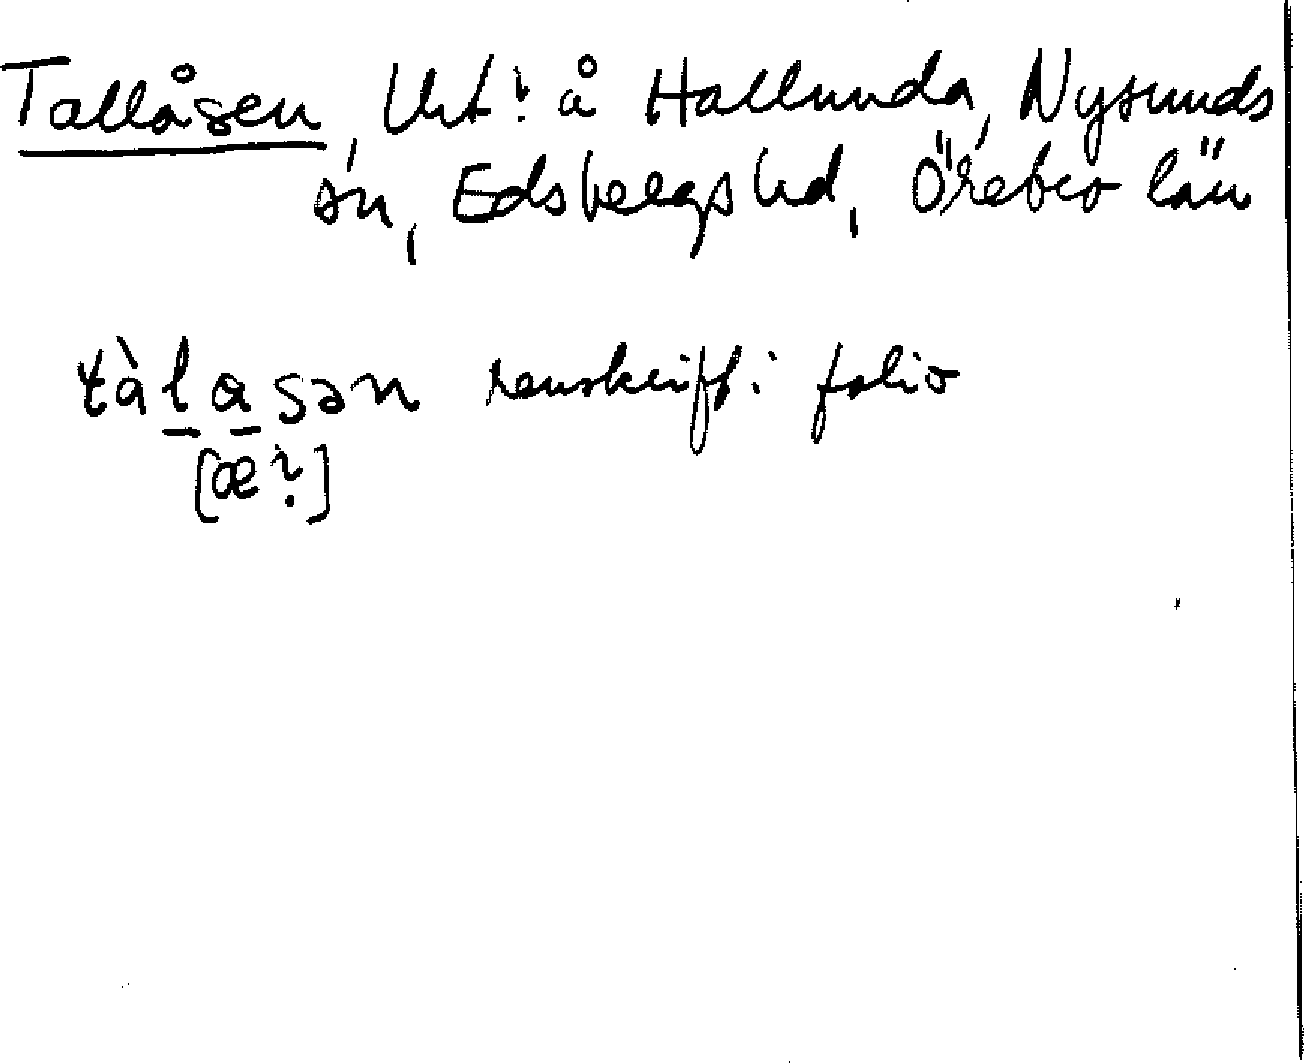 Tallåsen, Urt! å Hallunda, Nysunds
sn, Edsbergs hd, Örebro län
tàl a sən renskrift i folio
[æ?]